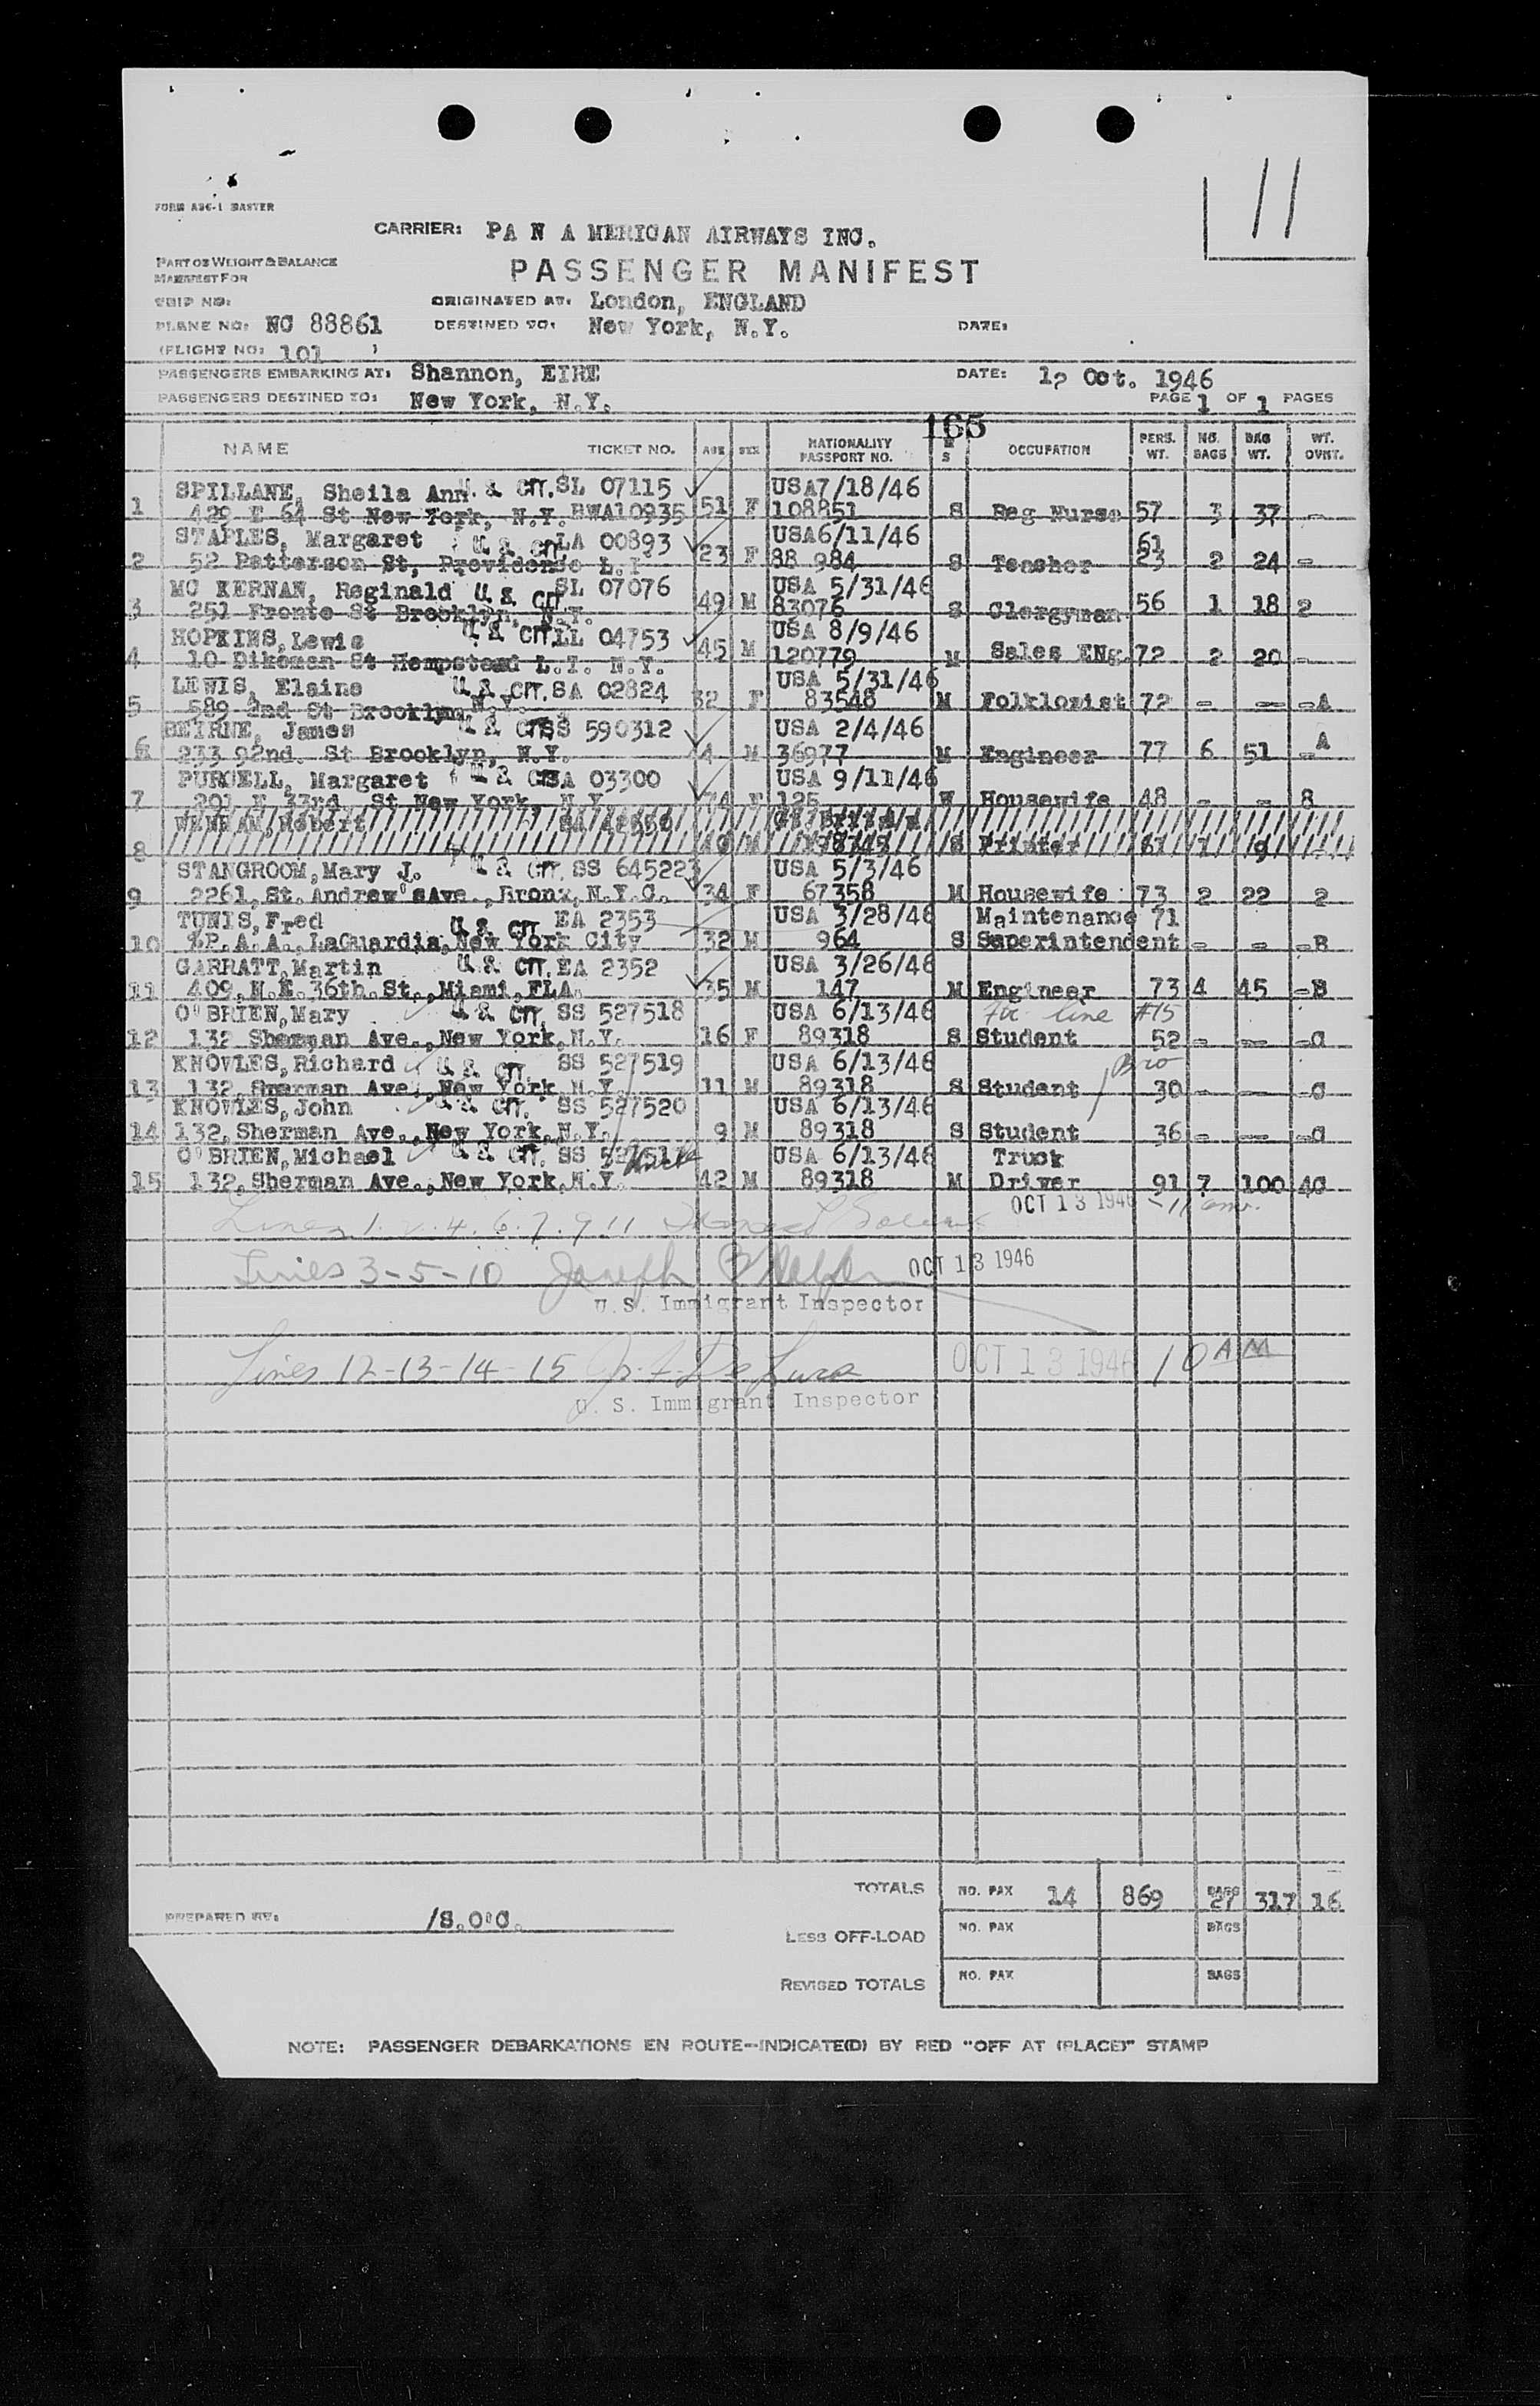 11
FORM ABC-1 MASTER
CARRIER: PA N A MERICAN AIRWAYS INC.
PART OF WEIGHT & BALANCE
MANIFEST FOR
PASSENGER MANIFEST
TRIP NO:
ORIGINATED AT: London, ENGLAND
PLANE NO: NC 88861 DESTINED TO: New York, N.Y. DATE:
(FLIGHT NO: 101 )
PASSENGERS EMBARKING AT: Shannon, EIRE DATE: 12 Oct. 1946
PASSENGERS DESTINED TO: New York, N.Y. PAGE 1 OF 1 PAGES
165
NAME TICKET NO. AGE SEX NATIONALITY PASSPORT NO. M S OCCUPATION PERS. WT. NO. BAGS BAG WT. WT. OVWT.
SPILLANE, Sheila Ann U. S. CIT. SL 07115 USA7/18/46
1 429 E 64 St New York, N.Y. BWA10935 51 F 108851 S Reg Nurse 57 3 37 -
STAPLES, Margaret U. S. CIT. LA 00893 USA6/11/46 61
2 52 Patterson St, Providence 23 F 88 984 S Teacher 23 2 24 -
MC KERNAN, Reginald U. S. CIT. SL 07076 USA 5/31/46
3 251 Fronte St Brooklyn, N.Y. 49 M 83076 S Clergyman 56 1 18 2
HOPKINS, Lewis U. S. CIT. LL 04753 USA 8/9/46
4 10 Dikeman St Hempstead L.I. N.Y. 45 M 120779 M Sales ENg. 72 2 20 -
LEWIS, Elaine U. S. CIT. SA 02824 USA 5/31/46
5 589 2nd St Brooklyn, N.Y. 32 F 83548 M Folklorist 72 - - -A
BEIRNE, James U. S. CIT. SS 590312 USA 2/4/46
6 233 92nd. St Brooklyn, N.Y. M 36977 M Engineer 77 6 51 -A
PURCELL, Margaret U. S. CIT. SA 03300 USA 9/11/46
7 201 E 33rd St New York, N.Y. 74 F 126 W Housewife 48 - - 8
WENHAM, Robert
8 M S Printer 9
STANGROOM, Mary J. U. S. CIT. SS 645223 USA 5/3/46
9 2261, St. Andrew'sAve., Bronx, N.Y.C. 34 F 67358 M Housewife 73 2 22 2
TUNIS, Fred U. S. CIT. EA 2353 USA 3/28/46 Maintenance 71
10 %P.A.A., LaGuardia, New York City 32 M 964 S Superintendent - - -B
GARRATT, Martin U. S. CIT. EA 2352 USA 3/26/46
11 409, N.E. 36th. St., Miami, FLA. 35 M 147 M Engineer 73 4 45 -B
O'BRIEN, Mary U. S. CIT. SS 527518 USA 6/13/46 line #15
12 132 Sherman Ave., New York, N.Y. 16 F 89318 S Student 52 - - -C
KNOWLES, Richard U. S. CIT. SS 527519 USA 6/13/46 Bro
13 132, Sherman Ave., New York, N.Y. 11 M 89318 S Student 30 - - -C
KNOWLES, John U. S. CIT. SS 527520 USA 6/13/46
14 132, Sherman Ave., New York, N.Y. 9 M 89318 S Student 36 - - -C
O'BRIEN, Michael U. S. CIT. SS 527517 Uncle USA 6/13/46 Truck
15 132, Sherman Ave., New York, N.Y. 42 M 89318 M Driver 91 7 100 4C
Lines 1. 2. 4. 6. 7. 9 11 OCT 13 1946
Lines 3-5-10 Joseph OCT 13 1946
U. S. Immigrant Inspector
Lines 12-13-14-15 OCT 13 1946 10 AM
U. S. Immigrant Inspector
TOTALS NO. PAX 14 869 BAGS 27 317 16
PREPARED BY: /S.O'C.
LESS OFF-LOAD NO. PAX BAGS
REVISED TOTALS NO. PAX BAGS
NOTE: PASSENGER DEBARKATIONS EN ROUTE--INDICATE(D) BY RED "OFF AT (PLACE)" STAMP